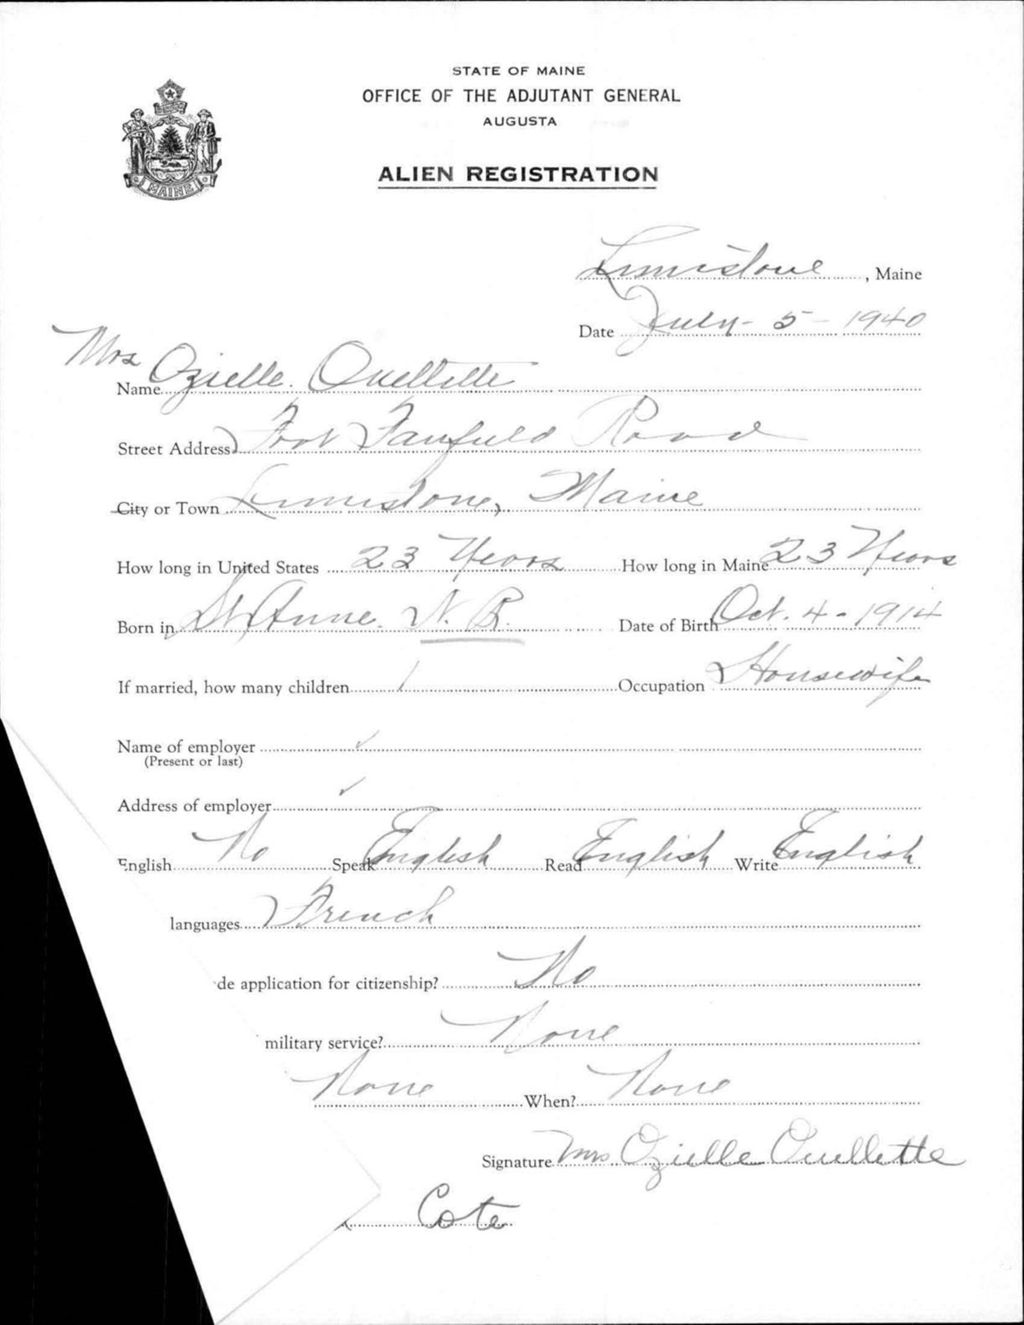 STATE OF MAINE
OFFICE OF THE ADJUTANT GENERAL
AUGUSTA
ALIEN REGISTRATION
MAINE
Limestone, Maine
Date July - 5 - 1940
Mrs
Name Ozielle. Ouellette
Street Address Fort Fairfield Road
City or Town Limestone, Maine
How long in United States 23 Years How long in Maine 23 Years
Born in St Anne. N. B. Date of Birth Oct. 4 - 1914
If married, how many children 1 Occupation Housewife
Name of employer ✓
(Present or last)
Address of employer ✓
English No Speak English Read English Write English
languages French
de application for citizenship? No
military service? None
None When? None
Signature Mrs Ozielle Ouellette
Cote